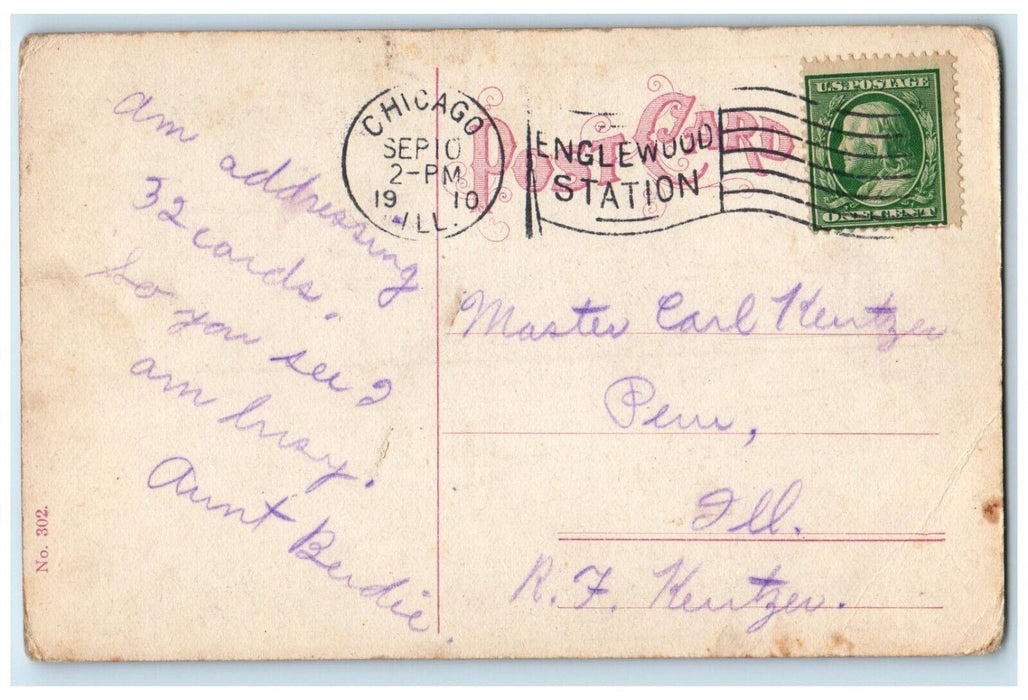 POST CARD
CHICAGO
SEP 10
2-PM
1910
ILL.
ENGLEWOOD
STATION
U.S. POSTAGE
ONE CENT
am addressing
32 cards.
So you see I
am busy.
Aunt Birdie.
Master Carl Kentzer
Peru,
Ill.
R. F. Kentzer.
No. 302.